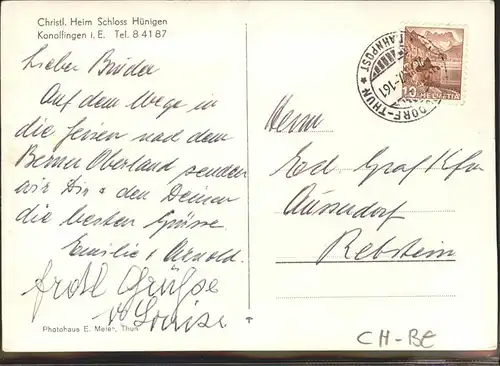 Christl. Heim Schloss Hünigen
Konolfingen i. E. Tel. 8 41 87
Lieber Bruder
Auf dem Wege in
die Ferien nach dem
Berner Oberland senden
wir Dir & den Deinen
die besten Grüsse.
Emilie & Arnold.
frohl Grüsse
v Louise
Photohaus E. Meier, Thun
BAHNPOST
DORF-THUN
HELVETIA
Herrn
Ed Graf Kfm
Ausserdorf
Rebstein
CH-BE